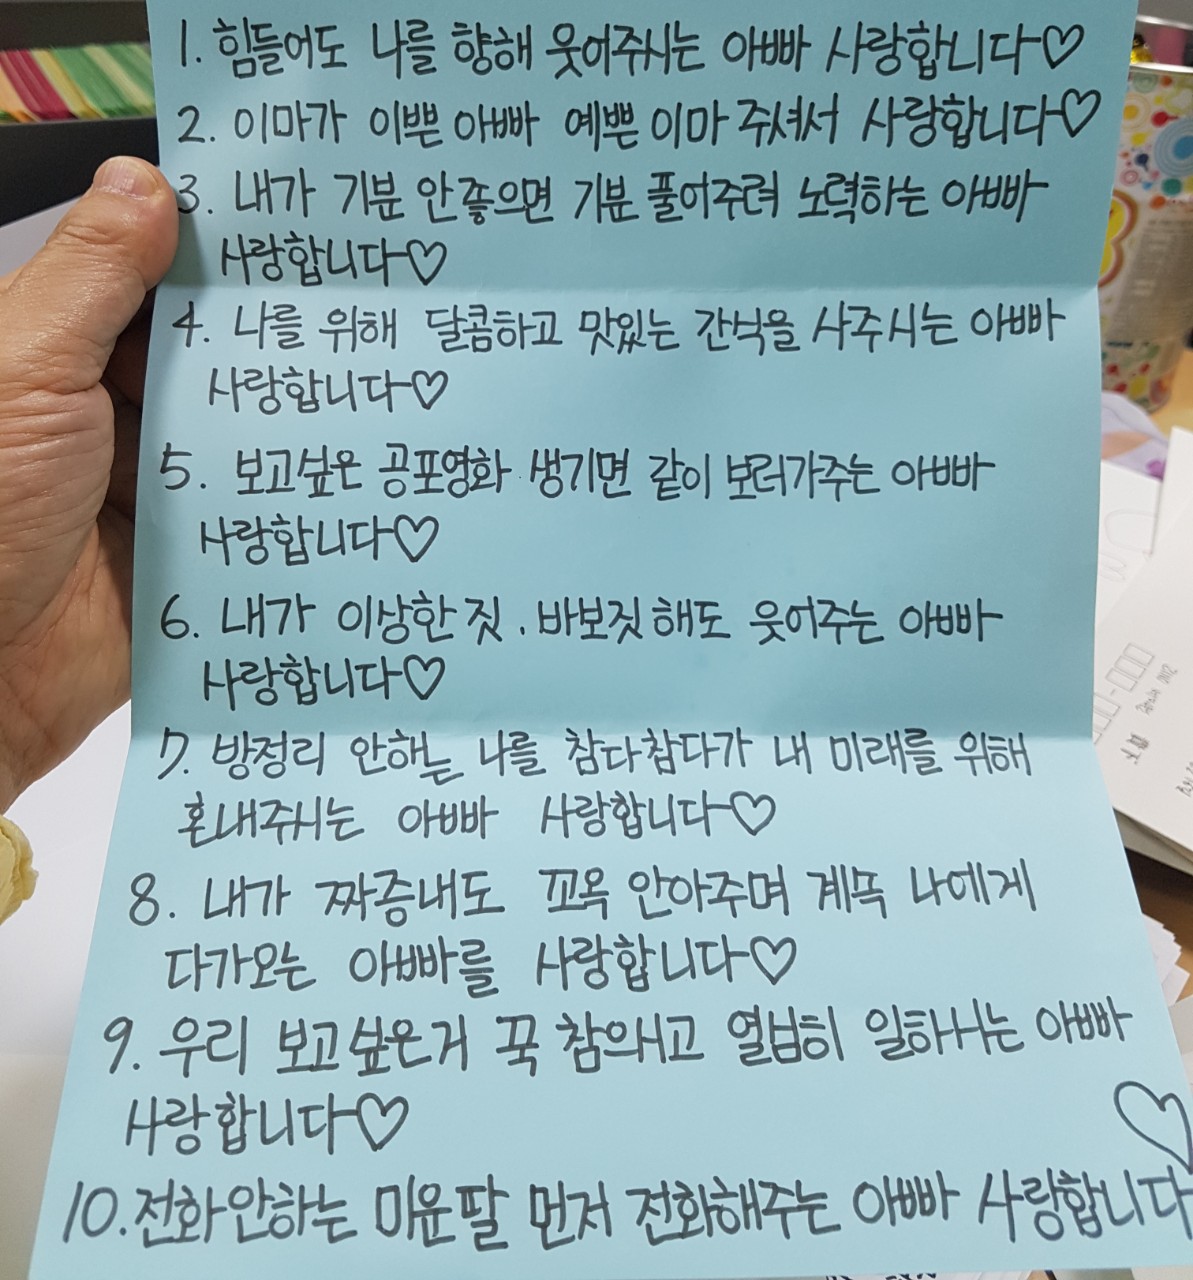 1. 힘들어도 나를 향해 웃어주시는 아빠 사랑합니다♡
2. 이마가 이쁜 아빠 예쁜 이마 주셔서 사랑합니다♡
3. 내가 기분 안좋으면 기분 풀어주려 노력하는 아빠
사랑합니다♡
4. 나를 위해 달콤하고 맛있는 간식을 사주시는 아빠
사랑합니다♡
5. 보고싶은 공포영화 생기면 같이 보러가주는 아빠
사랑합니다♡
6. 내가 이상한 짓. 바보짓 해도 웃어주는 아빠
사랑합니다♡
7. 방정리 안해는 나를 참다참다가 내 미래를 위해
혼내주시는 아빠 사랑합니다♡
8. 내가 짜증내도 꼬옥 안아주며 계속 나에게
다가오는 아빠를 사랑합니다♡
9. 우리 보고싶은거 꾹 참으시고 열심히 일하시는 아빠
사랑합니다♡
10. 전화안하는 미운딸 먼저 전화해주는 아빠 사랑합니다♡